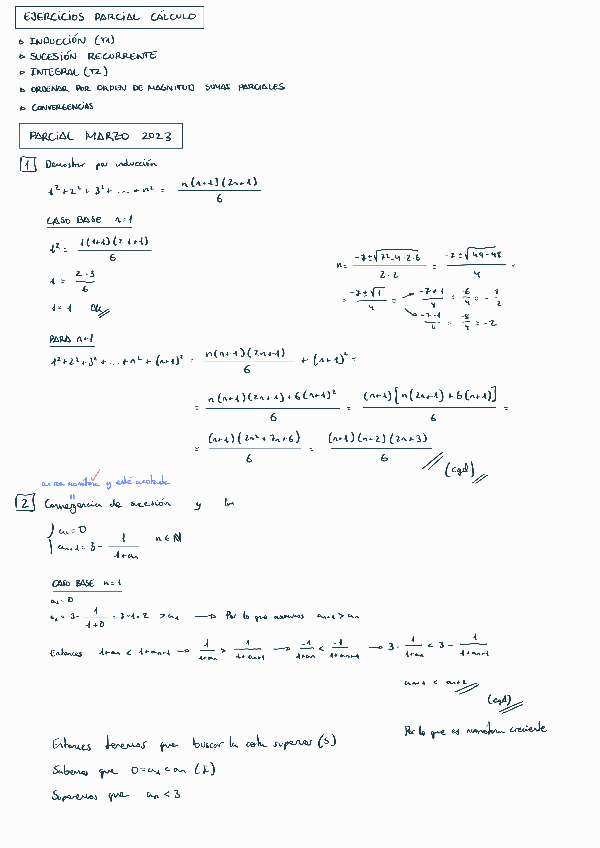 EJERCICIOS PARCIAL CÁLCULO
▹ INDUCCIÓN (T1)
▹ SUCESIÓN RECURRENTE
▹ INTEGRAL (T2)
▹ ORDENAR POR ORDEN DE MAGNITUD SUMAS PARCIALES
▹ CONVERGENCIAS
PARCIAL MARZO 2023
1 Demostrar por inducción
1² + 2² + 3² + ... + n² = n(n+1)(2n+1) / 6
CASO BASE n=1
1² = 1(1+1)(2·1+1) / 6
1 = 2·3 / 6
1 = 1 Ok
n = -7±√(7²-4·2·6) / 2·2 = -7±√(49-48) / 4 =
= -7±√1 / 4 = -7+1 / 4 = -6/4 = -3/2
-7-1 / 4 = -8/4 = -2
PARA n+1
1² + 2² + 3² + ... + n² + (n+1)² = n(n+1)(2n+1) / 6 + (n+1)² =
= n(n+1)(2n+1) + 6(n+1)² / 6 = (n+1)[n(2n+1) + 6(n+1)] / 6 =
= (n+1)(2n²+7n+6) / 6 = (n+1)(n+2)(2n+3) / 6 (cqd)
monótona y esté acotada
2 Convergencia de sucesión y lim
{ a₁ = 0
aₙ₊₁ = 3 - 1 / 1+aₙ n ∈ ℕ
CASO BASE n=1
a₁ = 0
a₂ = 3 - 1 / 1+0 = 3-1 = 2 > a₁ → Por lo que asumimos aₙ₊₁ > aₙ
Entonces 1+aₙ < 1+aₙ₊₁ → 1 / 1+aₙ > 1 / 1+aₙ₊₁ → -1 / 1+aₙ < -1 / 1+aₙ₊₁ → 3 - 1 / 1+aₙ < 3 - 1 / 1+aₙ₊₁
aₙ₊₁ < aₙ₊₂
(cqd)
Por lo que es monótona creciente
Entonces tenemos que buscar la cota superior (S)
Sabemos que 0 = a₁ < aₙ (I)
Suponemos que aₙ < 3